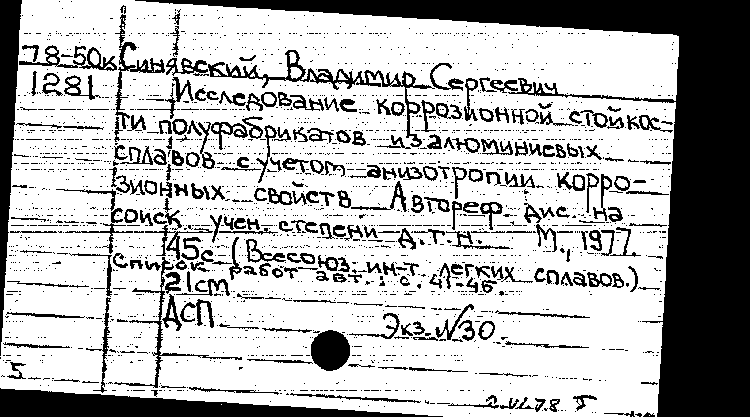 78-50к Синявский, Владимир Сергеевич
1281 Исследование коррозионной стойкос-
ти полуфабрикатов из алюминиевых
сплавов с учетом анизотропии корро-
зионных свойств Автореф. дис. на
соиск. учен. степени д.т.н. М., 1977.
45с (Всесоюз. ин-т легких сплавов.)
Список работ авт.: с. 41-45.
21cm.
ДСП Экз. №30.
5 2.VI.78